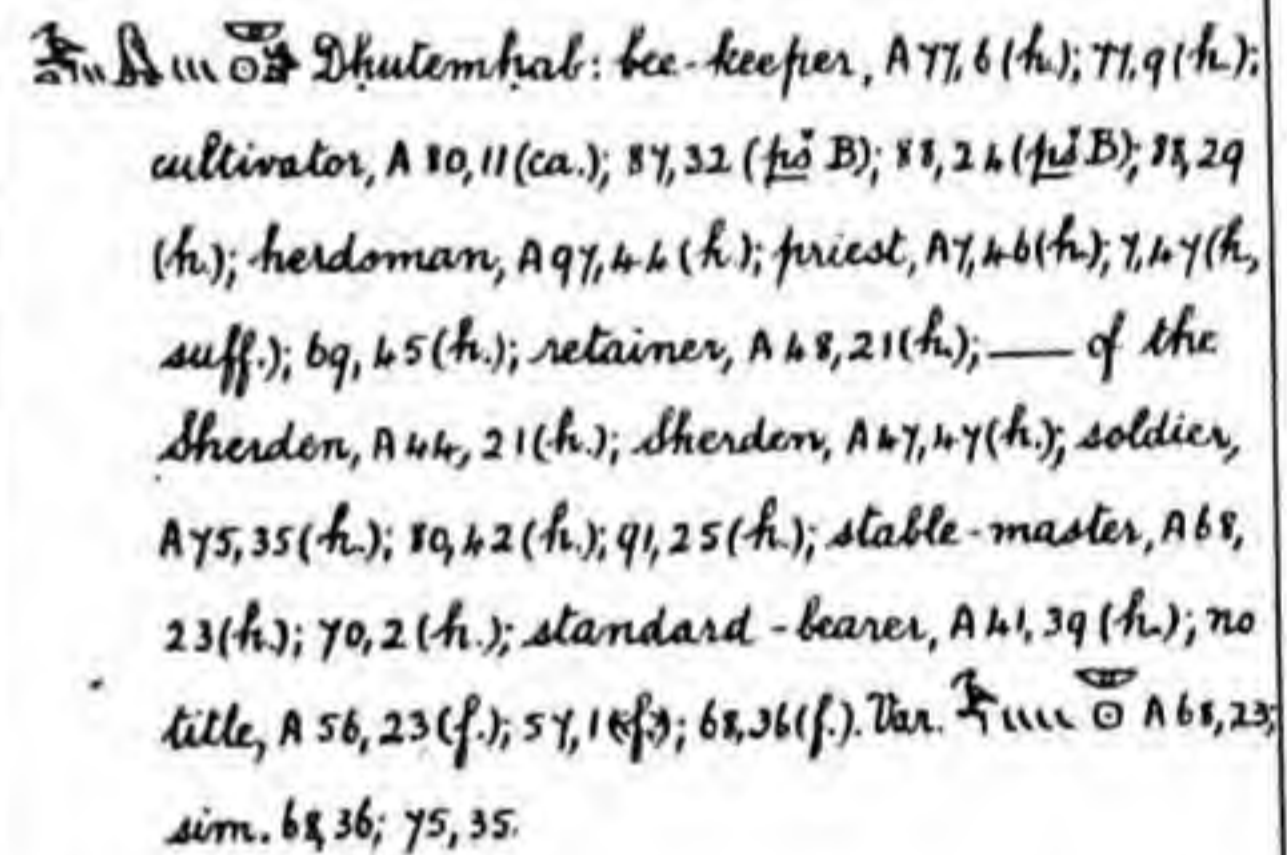 Dḥutemḥab: bee-keeper, A 77, 6 (h.); 77, 9 (h.);
cultivator, A 80, 11 (ca.); 87, 32 (pš B); 88, 24 (pš B); 88, 29
(h.); herdsman, A 97, 44 (h.); priest, A 7, 46 (h.); 7, 47 (h,
suff.); 69, 45 (h.); retainer, A 48, 21 (h.); — of the
Sherden, A 44, 21 (h.); Sherden, A 47, 47 (h.); soldier,
A 75, 35 (h.); 80, 42 (h.); 91, 25 (h.); stable-master, A 68,
23 (h.); 70, 2 (h.); standard-bearer, A 41, 39 (h.); no
title, A 56, 23 (f.); 57, 1 (f.); 68, 36 (f.). Var. A 68, 23;
sim. 68, 36; 75, 35.